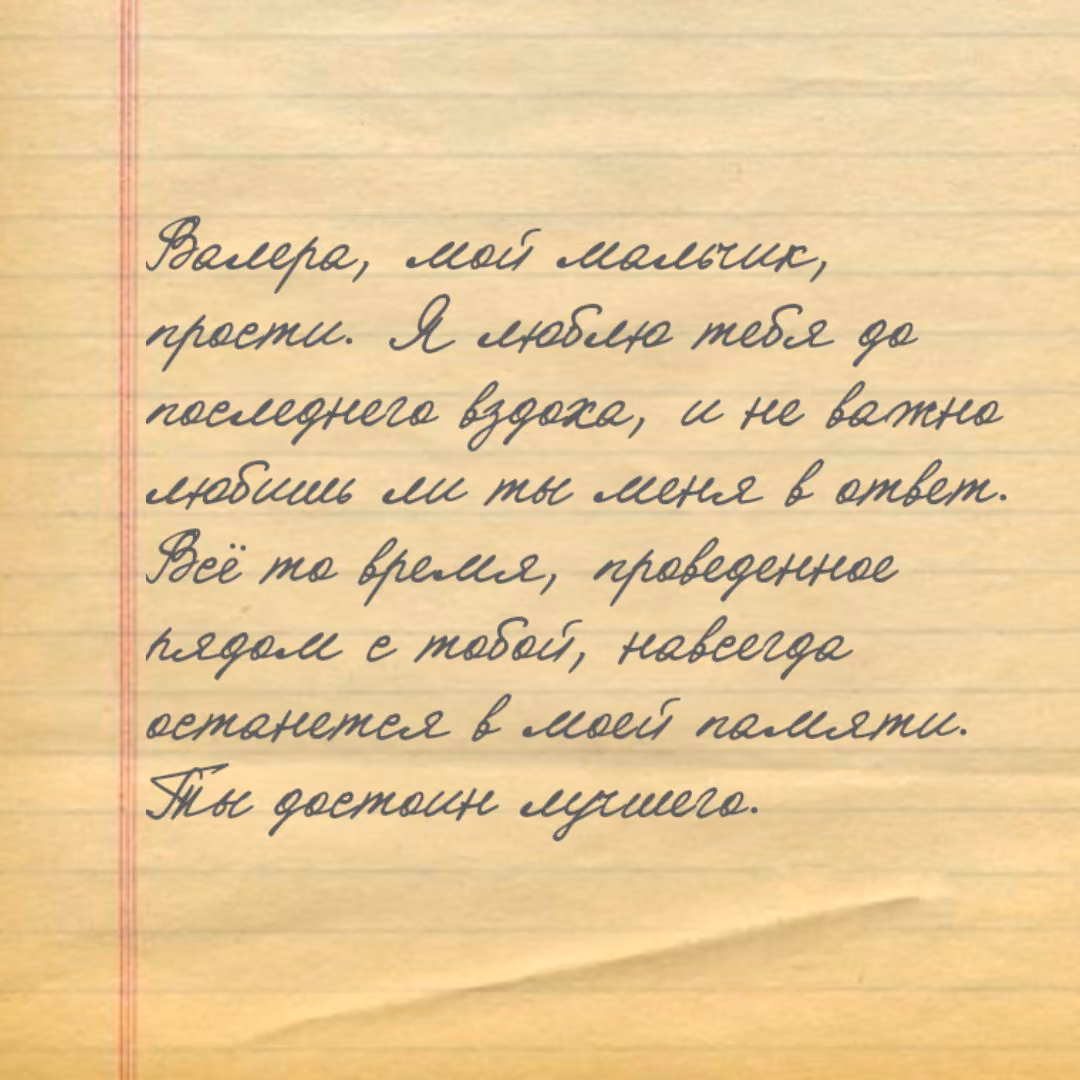 Валера, мой мальчик,
прости. Я люблю тебя до
последнего вздоха, и не важно
любишь ли ты меня в ответ.
Всё то время, проведенное
рядом с тобой, навсегда
останется в моей памяти.
Ты достоин лучшего.